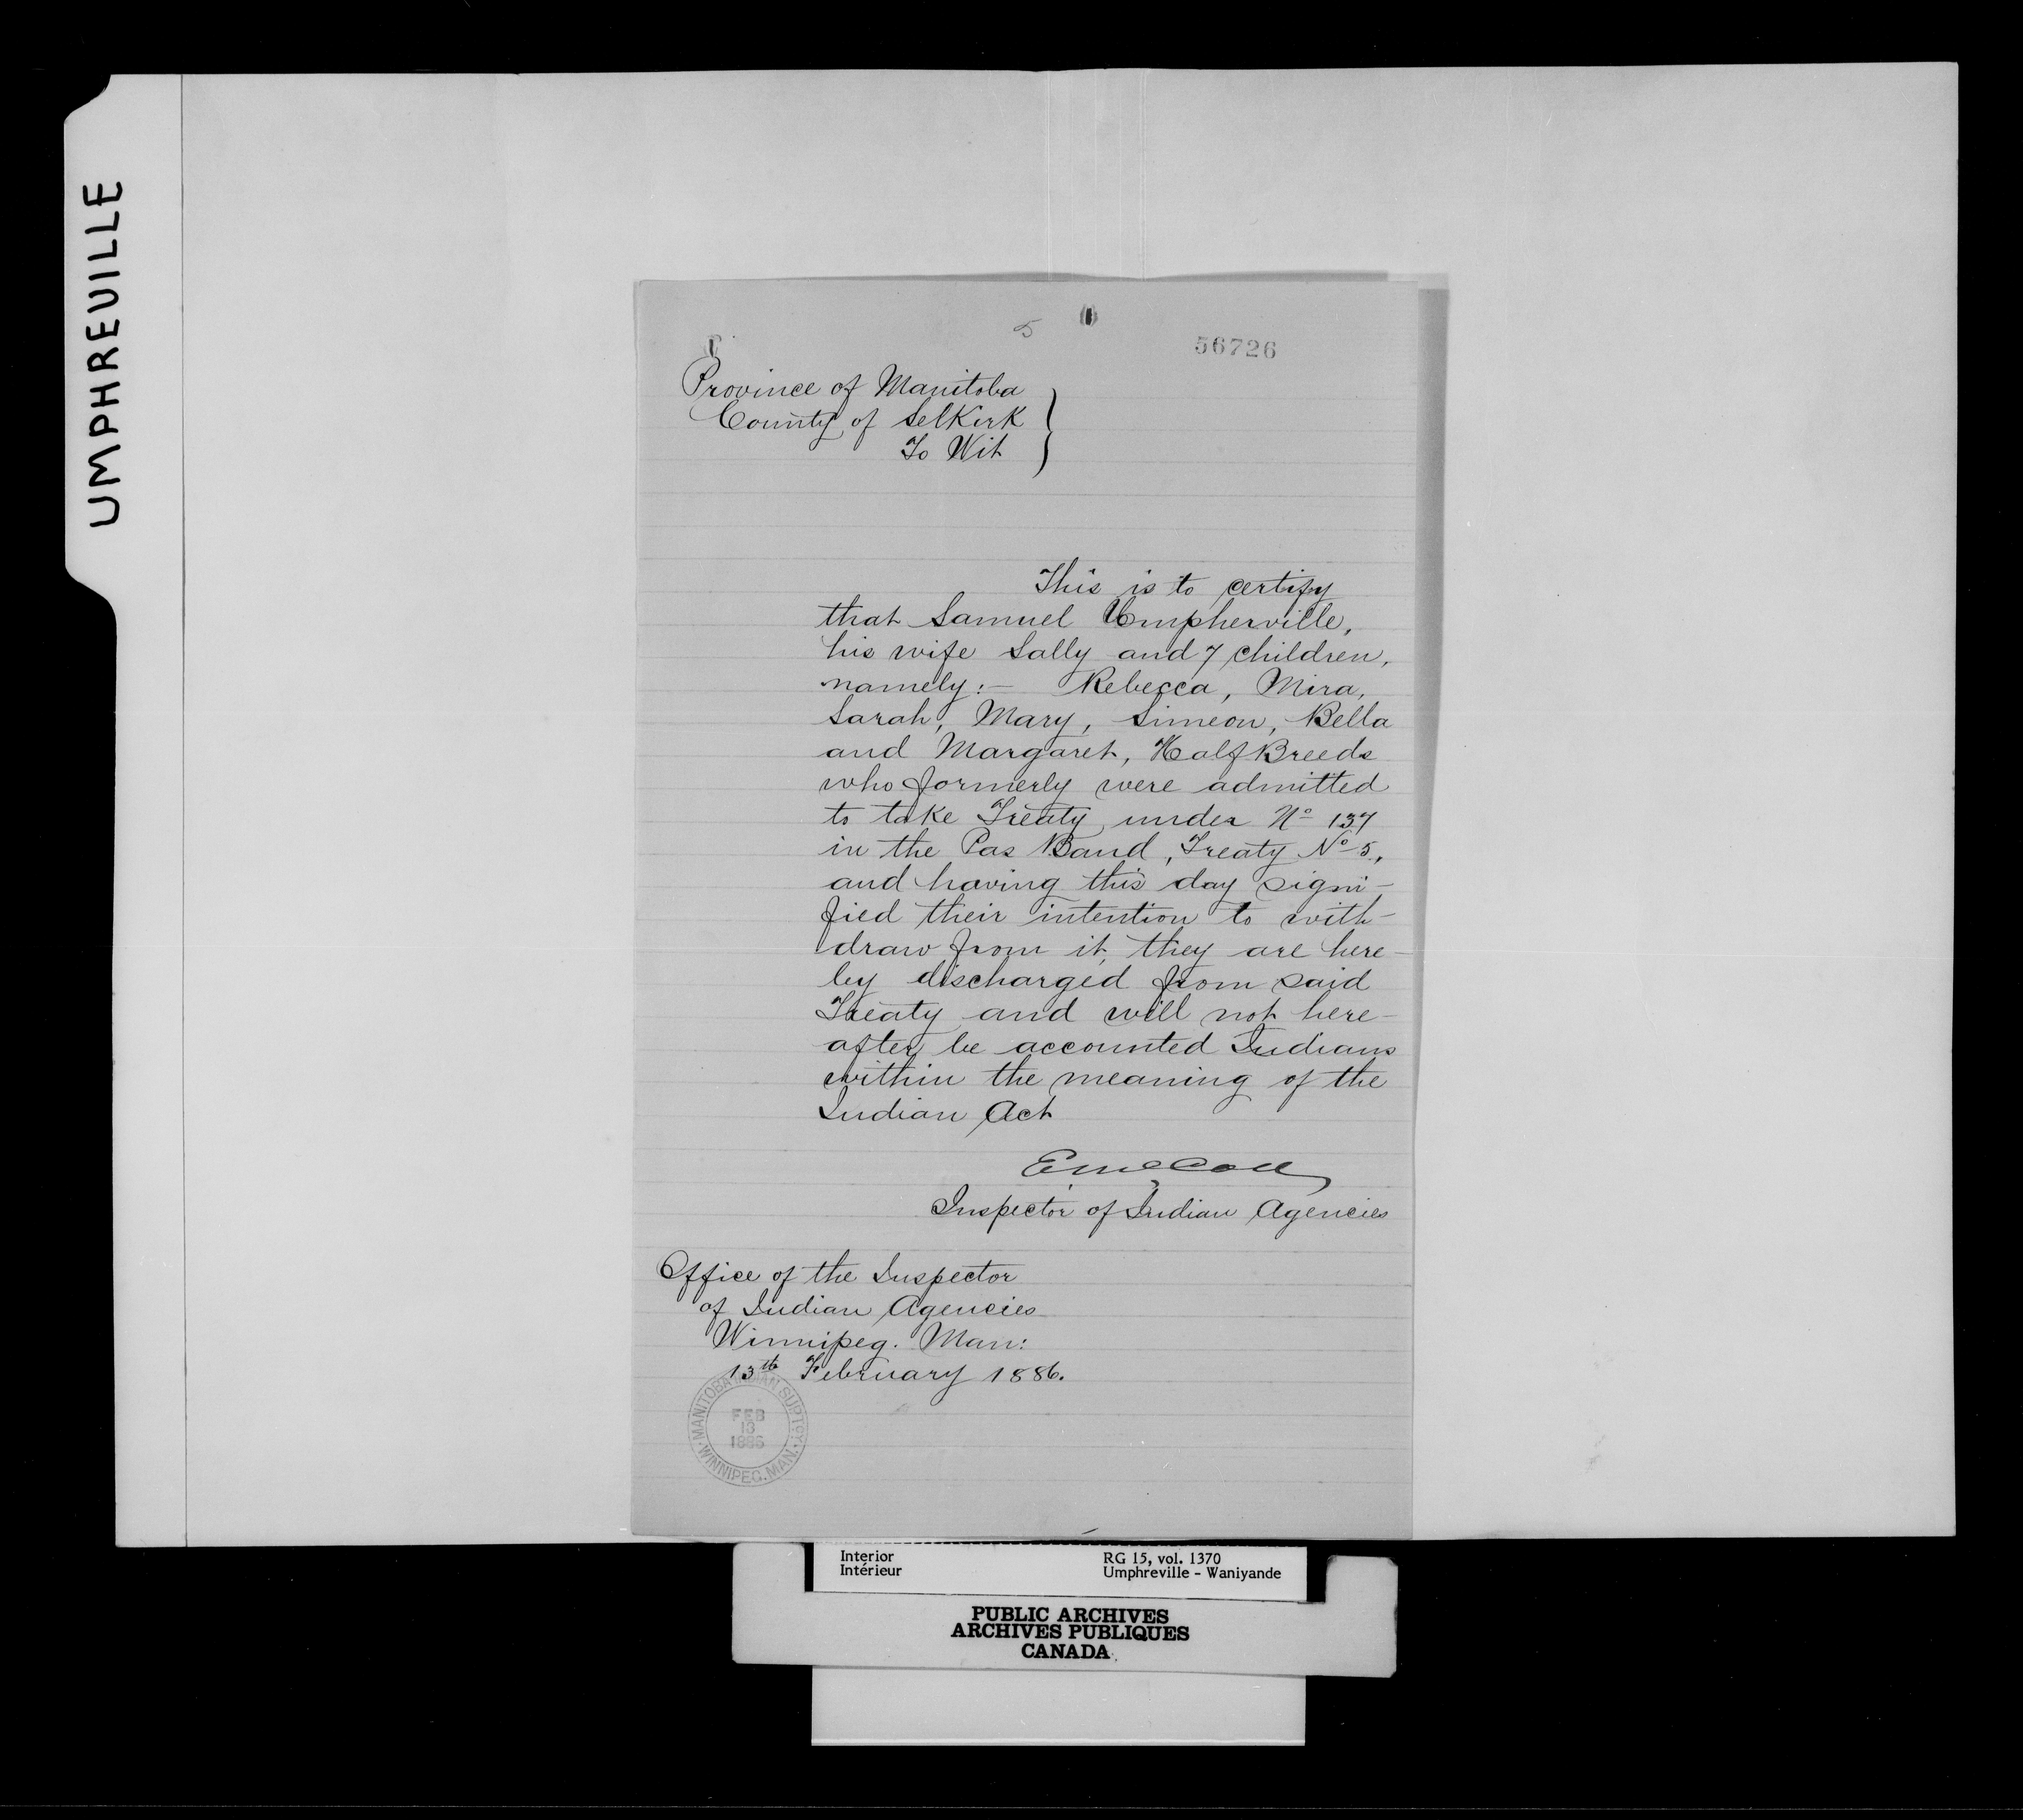 UMPHREVILLE
5
56726
Province of Manitoba
County of Selkirk
To Wit
This is to certify
that Samuel Umpherville,
his wife Sally and 7 children,
namely:- Rebecca, Mira,
Sarah, Mary, Simeon, Bella
and Margaret, Half Breeds
who formerly were admitted
to take Treaty under No 137
in the Pas Band, Treaty No 5,
and having this day signi-
fied their intention to with-
draw from it, they are here-
by discharged from said
Treaty and will not here-
after be accounted Indians
within the meaning of the
Indian Act
E McColl
Inspector of Indian Agencies
Office of the Inspector
of Indian Agencies
Winnipeg. Man:
13th February 1886.
MANITOBA INDIAN SUPTCY.
FEB
13
1886
WINNIPEG. MAN.
Interior RG 15, vol. 1370
Intérieur Umphreville - Waniyande
PUBLIC ARCHIVES
ARCHIVES PUBLIQUES
CANADA